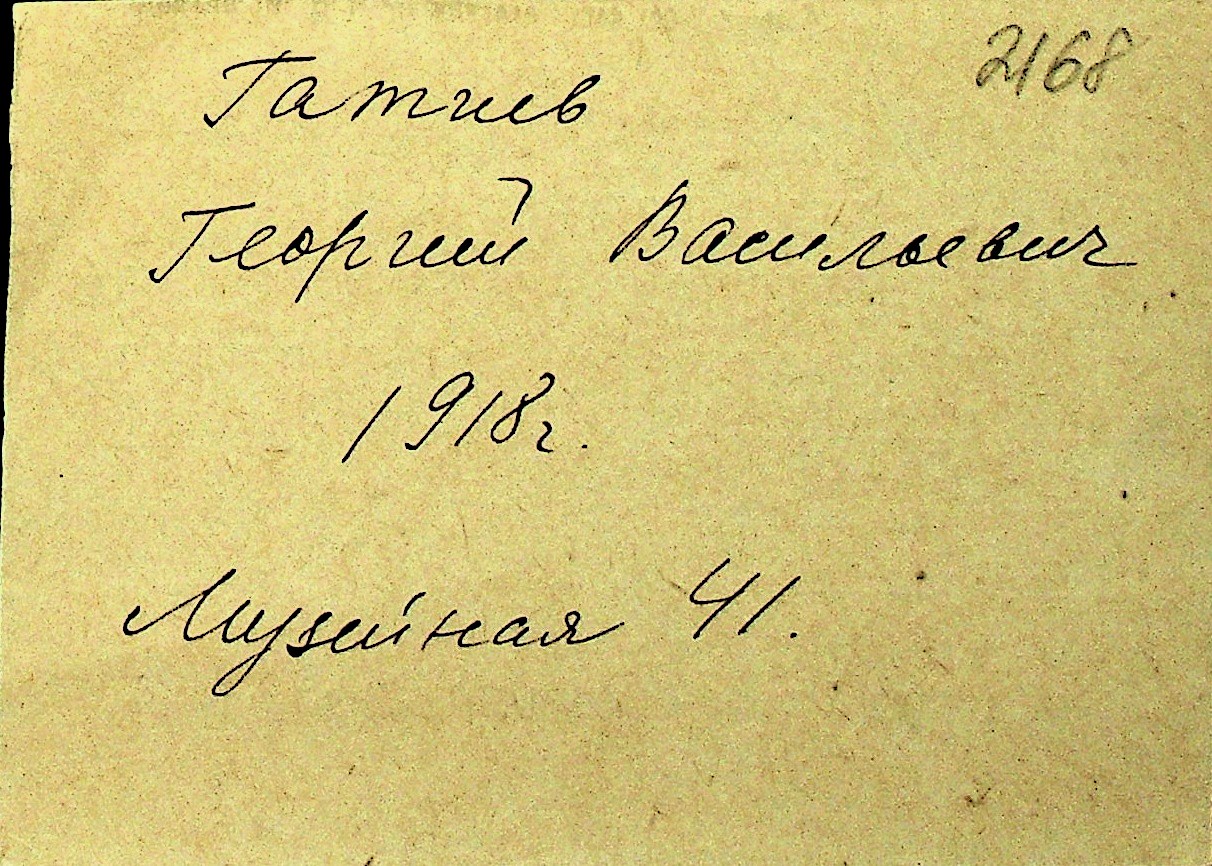 2168
Гатиев
Георгий Васильевич
1918г.
Музейная 41.